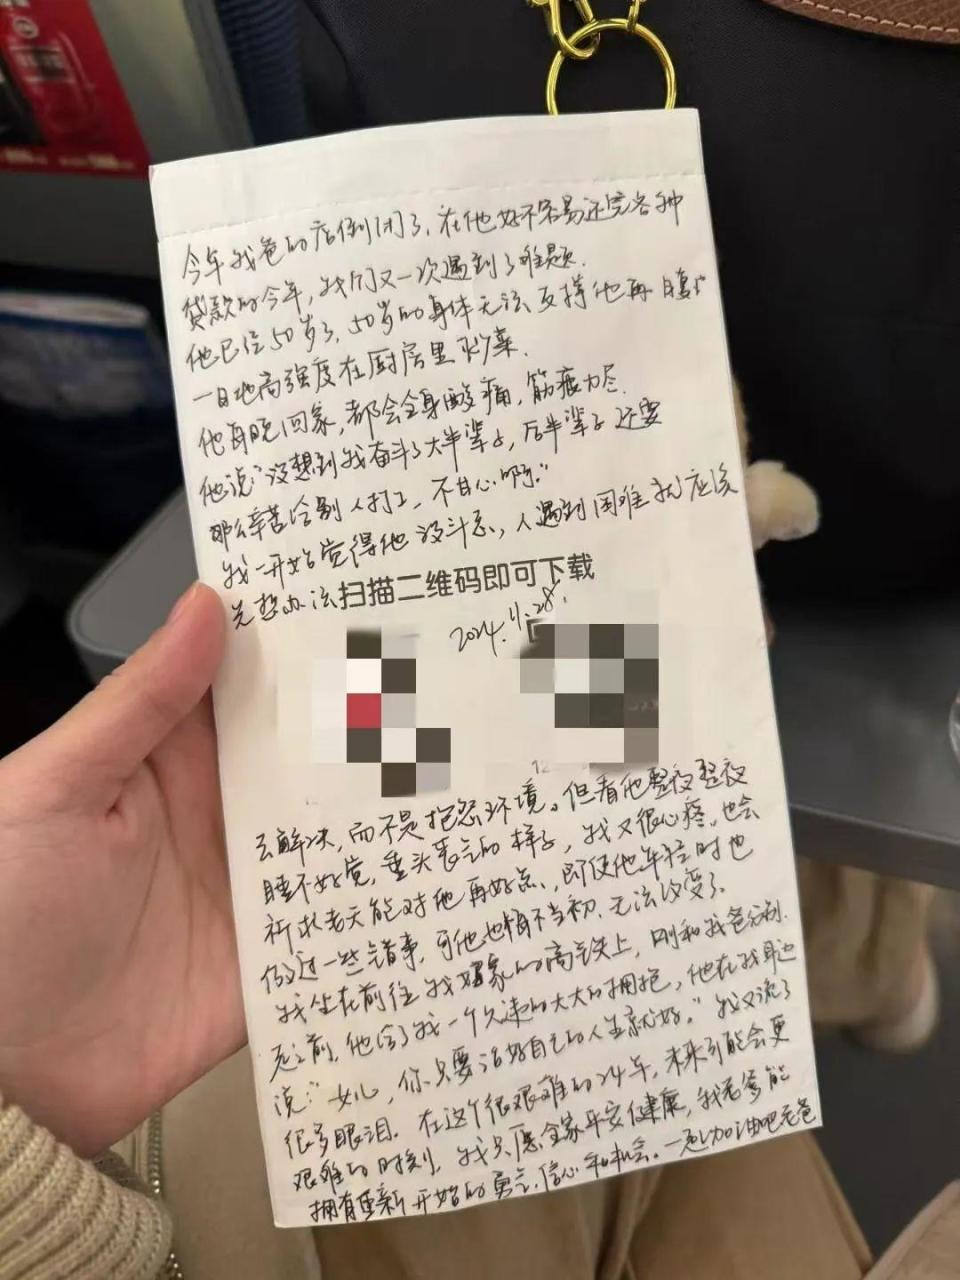 今年我爸的店倒闭了，在他好不容易还完各种
贷款的今年，我们又一次遇到了难题.
他已经50岁了，50岁的身体无法支持他再日复
一日地高强度在厨房里炒菜.
他每晚回家，都会全身酸痛，筋疲力尽.
他说："没想到我奋斗了大半辈子，后半辈子还要
那么辛苦给别人打工，不甘心啊."
我一开始觉得他没斗志，人遇到困难就应该
先想办法
扫描二维码即可下载
2024.11.28.
去解决，而不是抱怨环境。但看他整夜整夜
睡不好觉，垂头丧气的样子，我又很心疼，也会
祈求老天能对他再好点，即使他年轻时也
做过一些错事，可他也悔不当初、无法改变了.
我坐在前往我家的高铁上，刚和我爸分别.
走之前，他给了我一个久违的大大的拥抱，他在我身边
说："女儿，你只要活好自己的人生就好。"我又流了
很多眼泪.在这个很艰难的24年，未来可能会更
艰难的时刻，我只愿全家平安健康，我老爹能
拥有重新开始的勇气、信心和机会。一起加油吧老爸